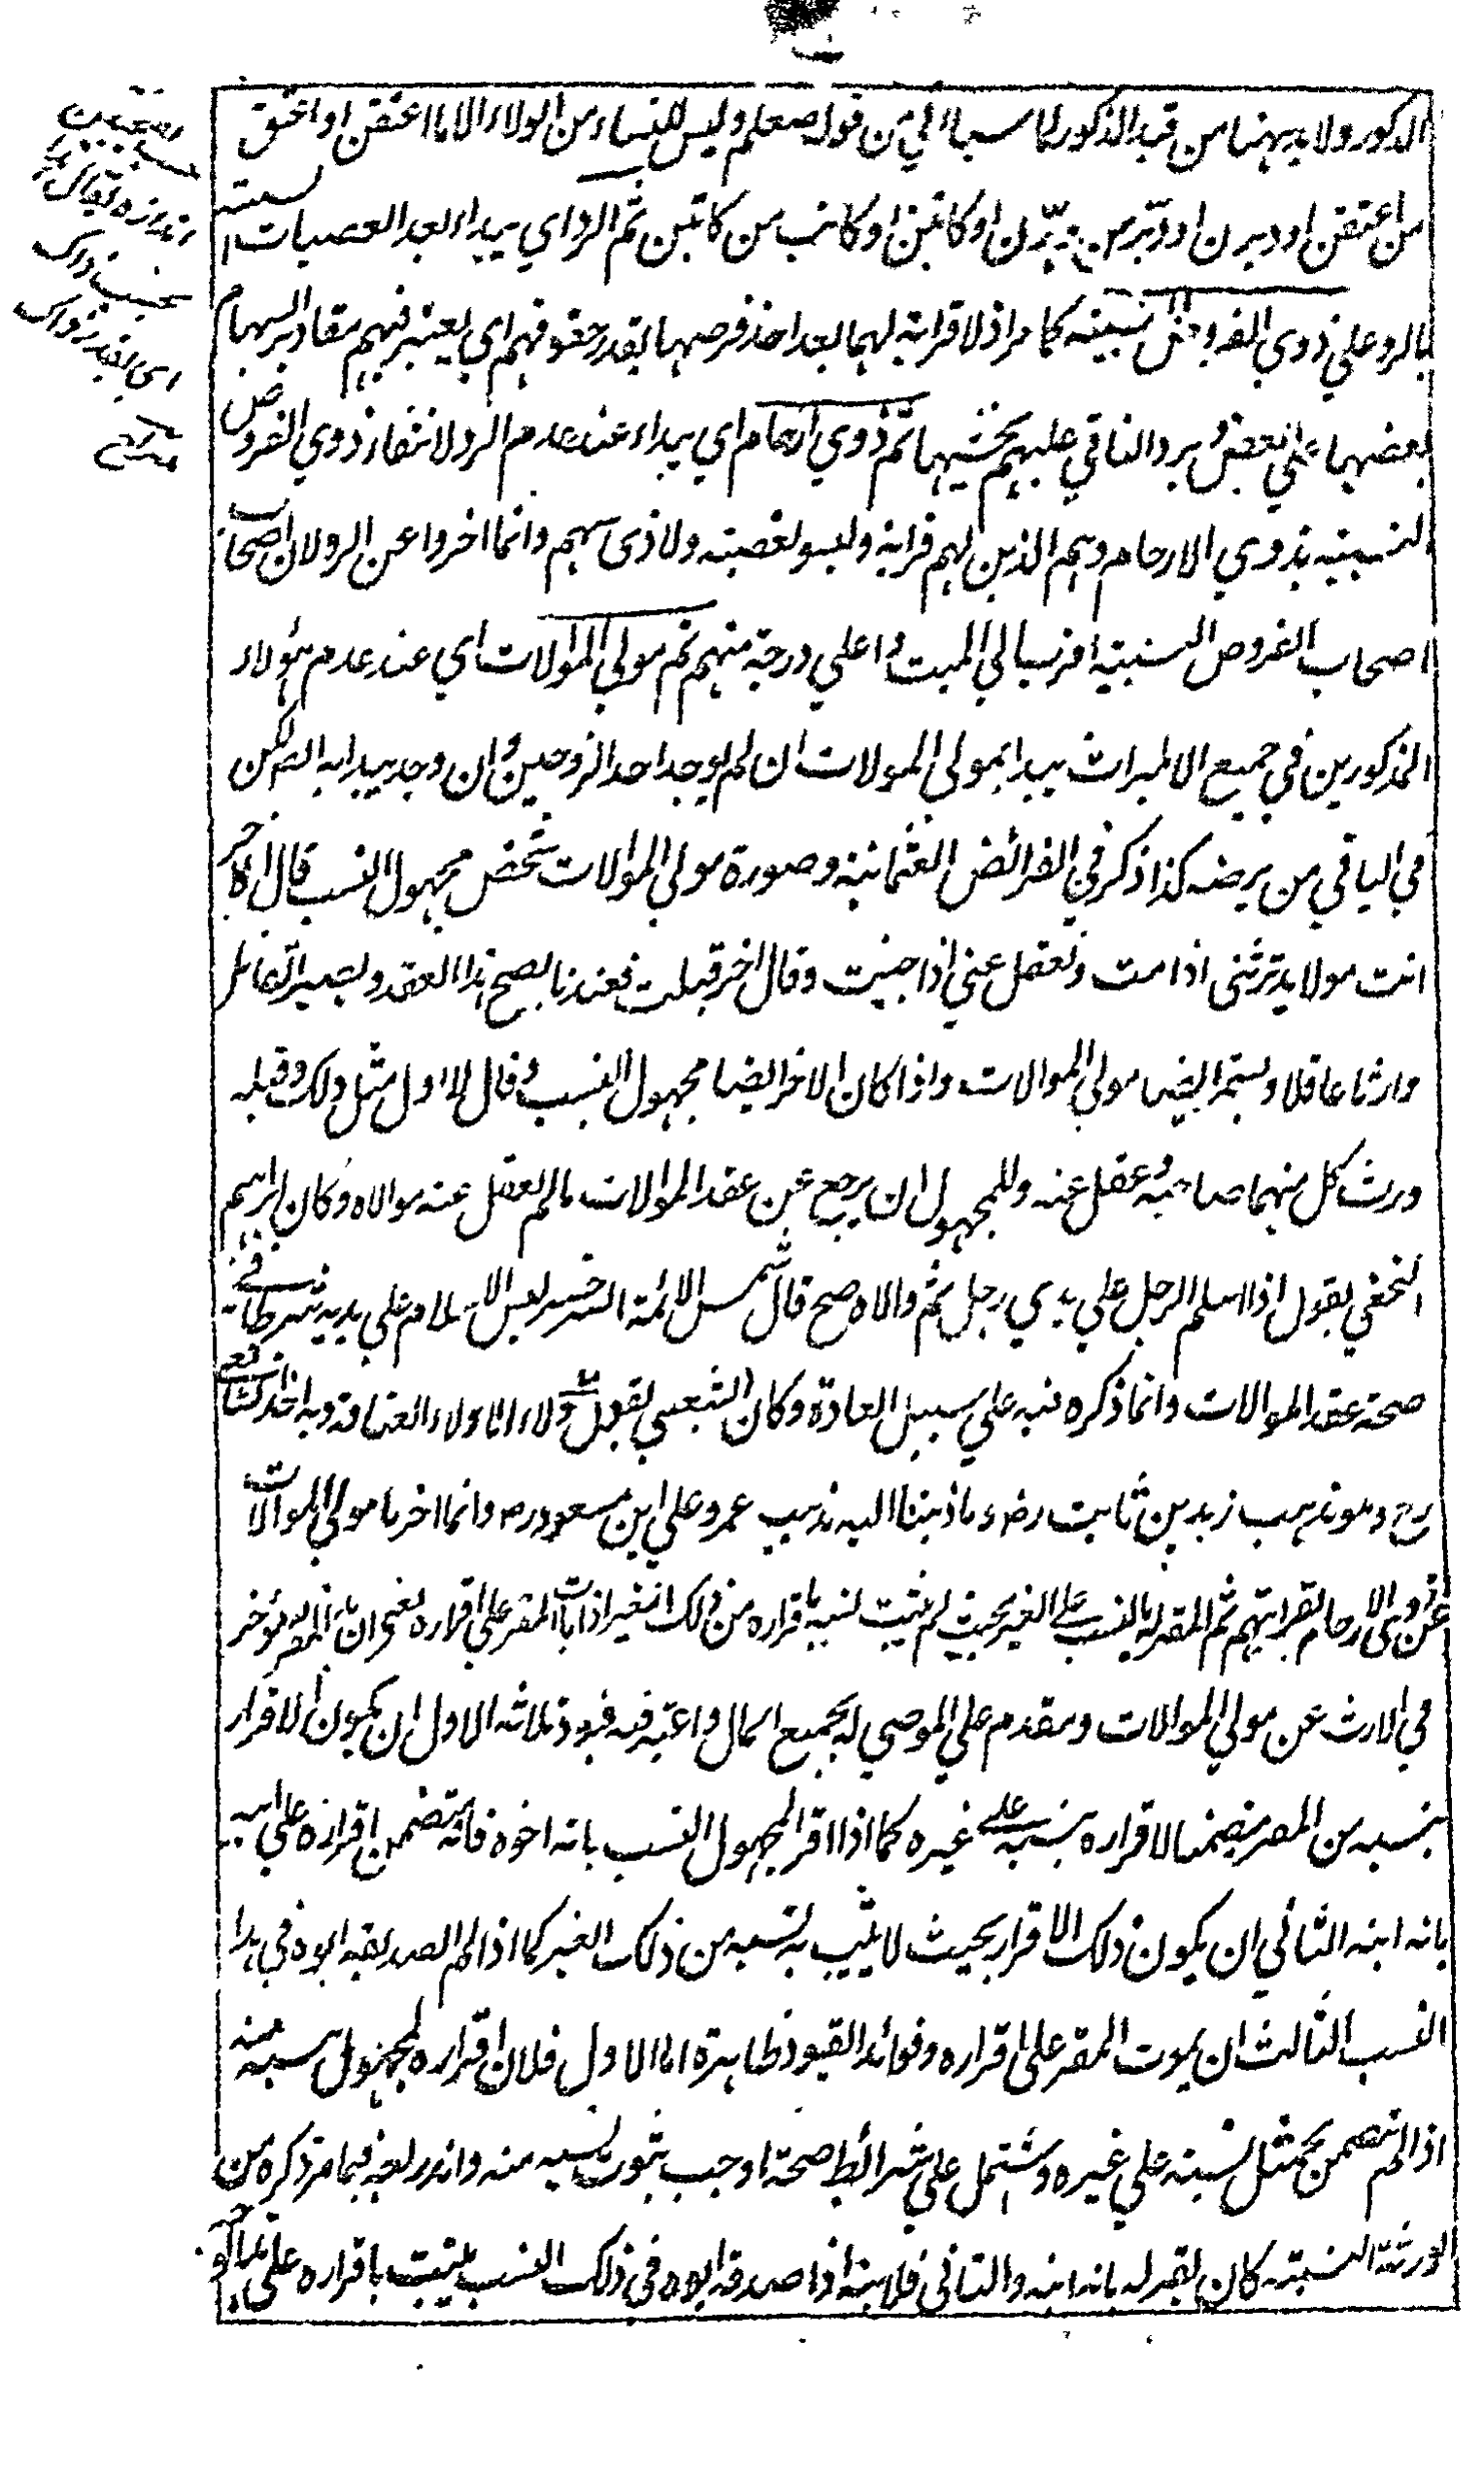 الذكور ولا بد ههنا من قيد الذكور لما سيأتي من قوله صعلم وليس للنساء من الولاء الا ما اعتقن او اعتق
من اعتقن او دبرن او دبر من دبرن او كاتبن او كاتب من كاتبن ثم الرد اي يبداء بعد العصبات النسبية
بالرد علي ذوي الفروض النسبية كما مر اذ لا قرابة لهما بعد اخذ فرضهما بقدر حقوقهم اي يعتبر فيهم مقادير السهام
بعضهما علي بعض ويرد الباقي عليهم بحسبها ثم ذوي الارحام اي يبداء عند عدم الرد لانتفاء ذوي الفروض
النسبية بذوي الارحام وهم الذين لهم قرابة وليسو لعصبته ولا ذى سهم وانما اخروا عن الرد لان اصحاب
اصحاب الفروض النسبية اقرب الي الميت واعلي درجة منهم ثم مولي الموالات اي عند عدم هؤلاء
المذكورين في جميع الا لميراث يبدا بمولي المولات ان لم يوجد احد الزوجين وان وجد يبدا به لكن
في الباقي من فرضه كذا ذكر في الفرائض العثمانية وصورة مولي الموالات شخص مجهول النسب قال لاخر
انت مولاي ترثنى اذا مت وتعقل عني اذا جنيت وقال اخر قبلت فعندنا يصح هذا العقد ويصير القابل
وارثا عاقلا ويسمى ايضا مولي الموالات واذا كان الاخر ايضا مجهول النسب وقال للاول مثل ذلك وقبله
ورث كل منهما صاحبه وعقل عنه وللمجهول ان يرجع عن عقد الموالات ما لم يعقل عنه مولاه وكان ابراهيم
النخعي يقول اذا اسلم الرجل علي يدي رجل ثم والاه صح قال شمس الائمة السرخسي ليس الاسلام علي يديه شرطا في
صحة عقد الموالات وانما ذكره فيه علي سبيل العادة وكان الشعبي يقول لا ولاء الا ولاء العتاقة وبه اخذ الشافعي
رح وهو مذهب زيد بن ثابت رض وما ذهبنا اليه مذهب عمر وعلي ابن مسعود رض وانما اخر ما مولي الموالات
عن ذوى الارحام لقرابتهم ثم المقر له بالنسب على الغير بحيث لم يثبت نسبه باقراره من ذلك الغير اذا مات المقر علي اقراره يعنى ان هذا المقر له مؤخر
في الارث عن مولي الموالات ومقدم علي الموصي له بجميع المال واعتبر فيه قيود ثلاثه الاول ان يكون الاقرار
بنسبه من المقر متضمنا لاقراره بنسبه على غيره كما اذا اقر لمجهول النسب بانه اخوه فانه يتضمن اقراره علي ابيه
بانه ابنه الثاني ان يكون ذلك الاقرار بحيث لا يثبت به نسبه من ذلك الغير كما اذا لم يصدقه ابوه في هذا
النسب الثالث ان يموت المقر علي اقراره وفوائد القيود ظاهرة اما الاول فلان اقراره لمجهول نسبه منه
اذا لم يتضمن تحمل نسبته علي غيره ويشتمل علي شرائط صحة اوجب ثبوت نسبه منه واندرج فيما مر ذكره من
الورثة النسبية كان يقر له بانه ابنه والثاني فلانه اذا صدقه ابوه في ذلك النسب يثبت باقراره علي